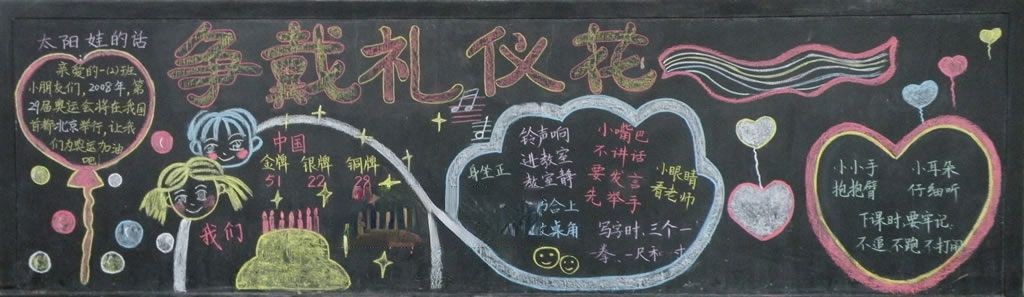 争戴礼仪花
太阳娃的话
亲爱的一(2)班
小朋友们,2008年,第
29届奥运会将在我国
首都北京举行,让我
们为奥运加油
吧!
中国
金牌 银牌 铜牌
51 22 28
我们
铃声响
进教室
教室静
身坐正
小嘴巴
不讲话
要发言
先举手
小眼睛
看老师
合上
桌角
写字时,三个一
一拳、一尺和一寸
小小手
抱抱臂
小耳朵
仔细听
下课时,要牢记,
不逗不跑不打闹